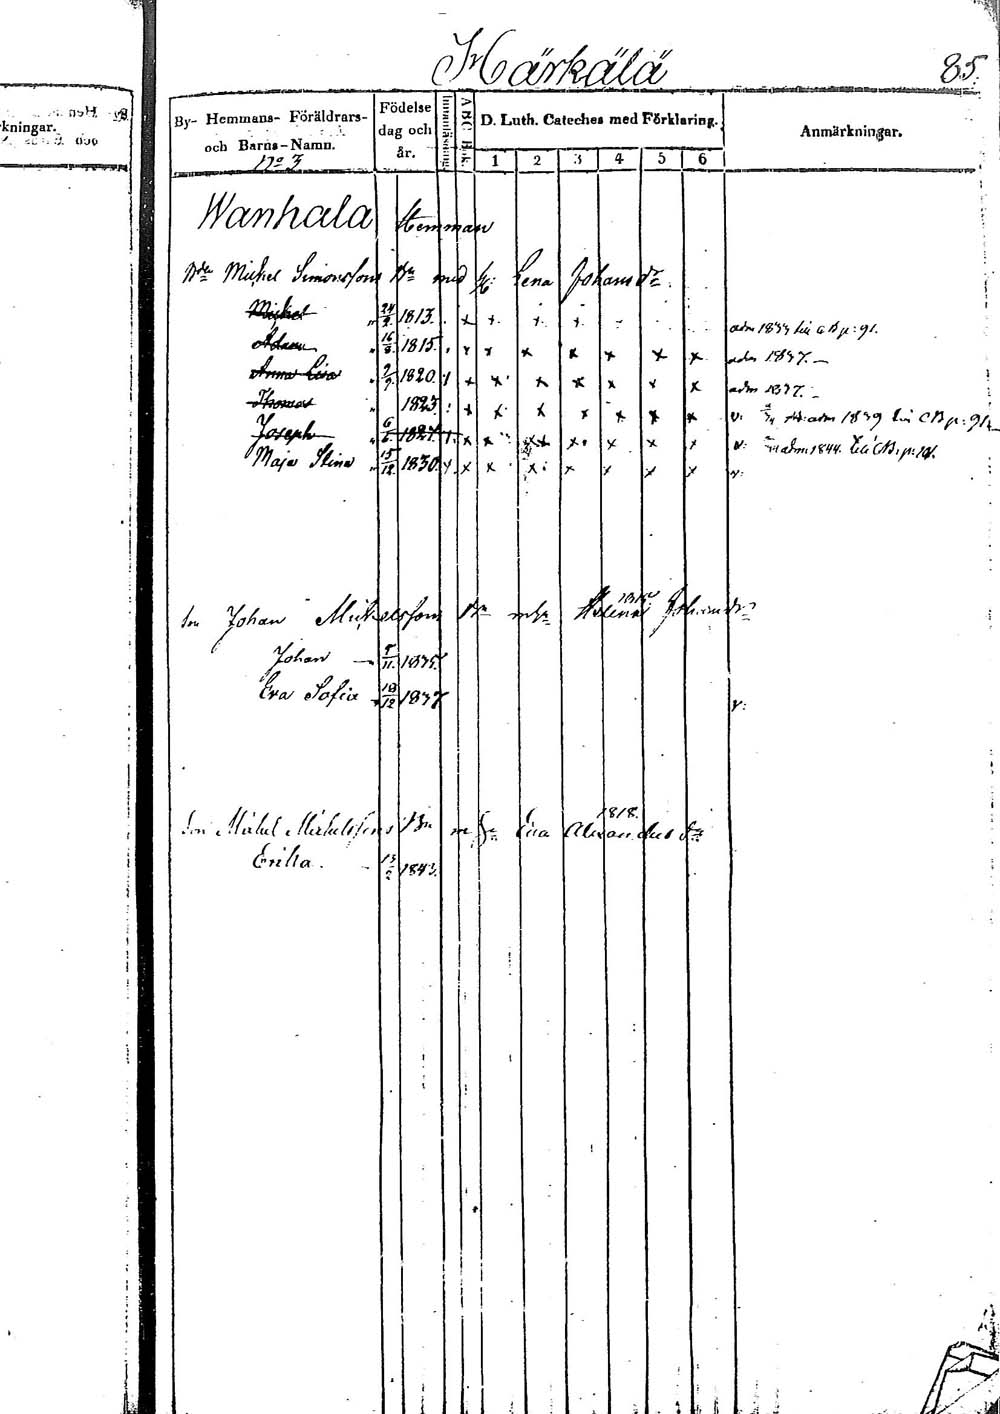 Härkälä
85.
kningar.
By- Hemmans- Föräldrars- och Barns-Namn.
No 3
Födelse dag och år.
Innanläsning
A B C B.k.
D. Luth. Cateches med Förklaring.
1 2 3 4 5 6
Anmärkningar.
Wanhala Hemman
Bdn Mickel Simonssons Bn med h: Lena Johansdr
Mickel " 24/9 1813. x x x x adm 1834 C B p: 91.
Adam " 16/8 1815. x x x x x x x adm 1837.
Anna Lisa " 2/9 1820. x x x x x x x adm 1837.
Thomas " 1823. x x x x x x x v: adm 1839 C B p: 91
Joseph 6/6 1827. x x x x x x x v: adm 1844. C B. p:
Maja Stina " 15/12 1830. x x x x x x x x v:
Son Johan Mickelssons Bn Helena Johansdr
Johan 5/11 1835.
Eva Sofia 18/12 1837 v:
1818.
Son Mickel Mickelssons Bn m h Lisa Alexandersdr
Erika. 1843.